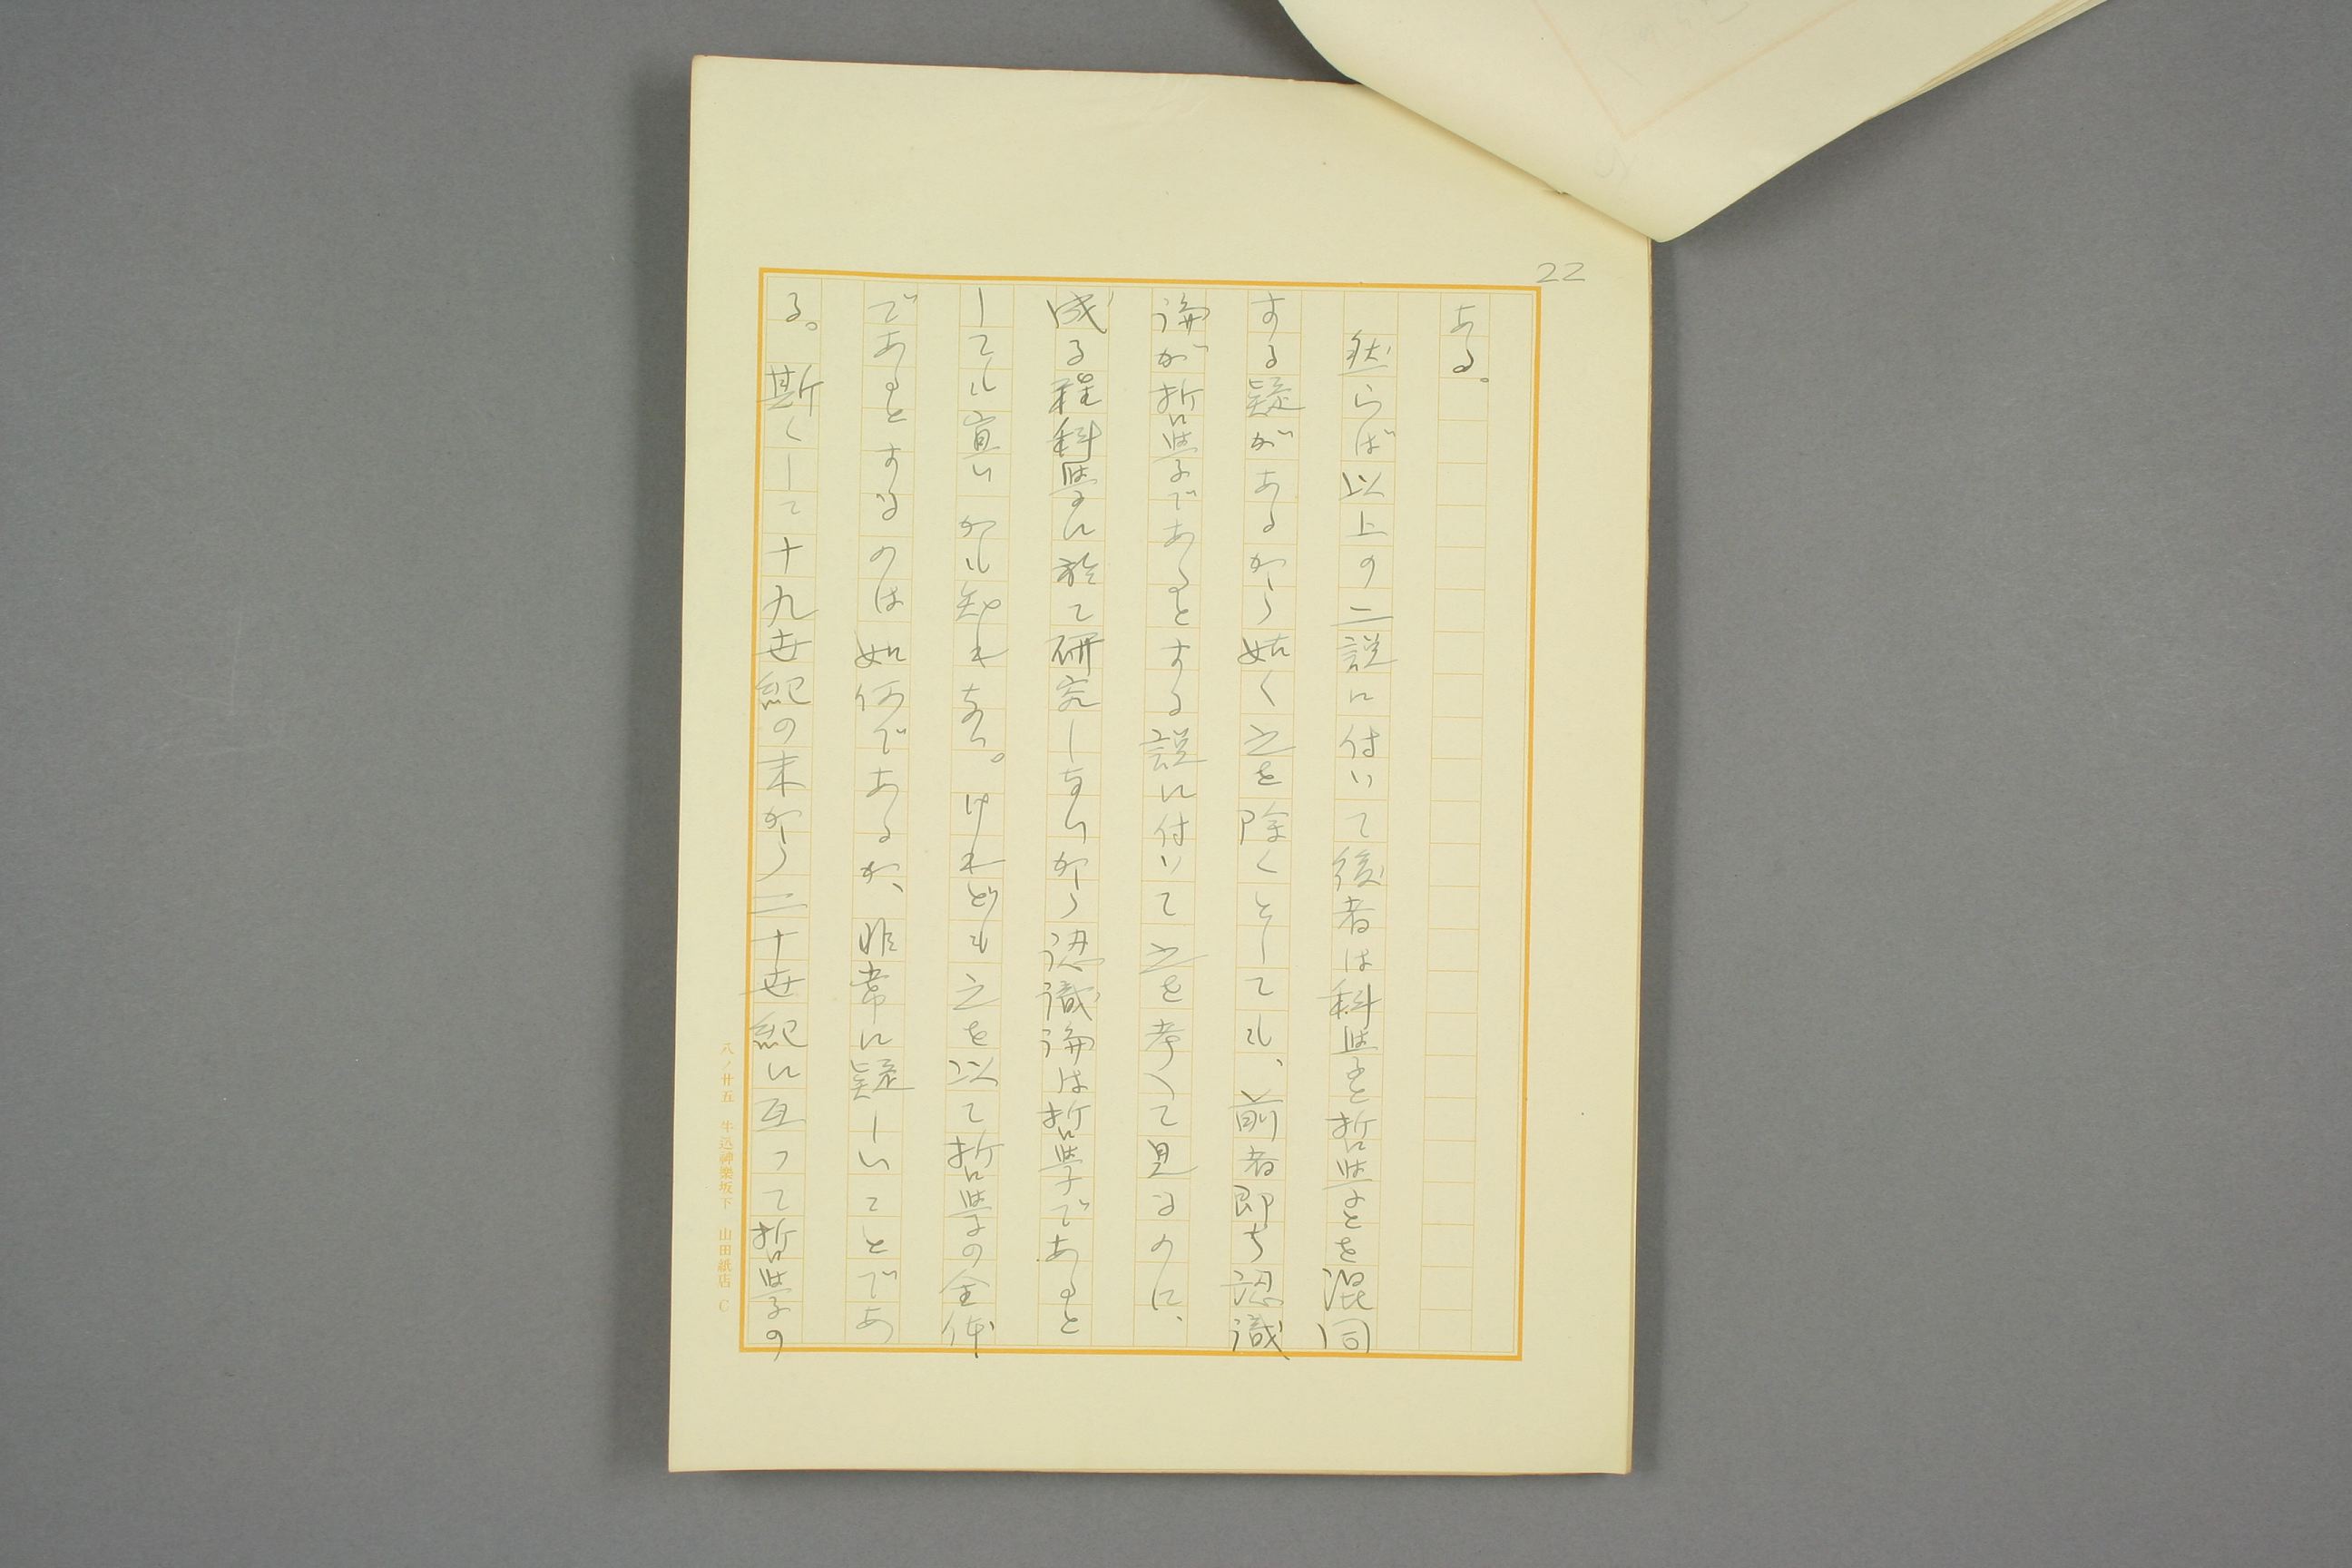 22
ある。
然らば以上の二説に付いて後者は科学と哲学とを混同
する疑があるから姑く之を除くとしても、前者即ち認識
論が哲学であるとする説に付いて之を考へて見るのに、
成る程科学に於て研究しないから認識論は哲学であると
しても宜いかも知れない。けれども之を以て哲学の全体
であるとするのは如何であるか、非常に疑しいことであ
る。斯くして十九世紀の末から二十世紀に亙って哲学の
八ノ廿五 牛込神樂坂下 山田紙店 C